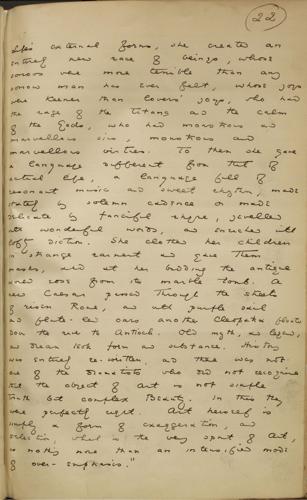 22
life's external forms, she created an
entirely new race of beings, whose
sorrows were more terrible than any
sorrow man has ever felt, whose joys
were keener than lovers' joys, who had
the rage of the Titans and the calm
of the Gods, who had monstrous and
marvellous sins, monstrous and
marvellous virtues. To them she gave
a language different from that of
actual life, a language full of
resonant music and sweet rhythm, made
stately by solemn cadence or made
delicate by fanciful rhyme, jewelled
with wonderful words, and enriched with
lofty diction. She clothed her children
in strange raiment and gave them
masks, and at her bidding the antique
world rose from its marble tomb. A
new Caesar passed through the streets
of risen Rome, and with purple sail
and flute-led oars another Cleopatra
down the river to Antioch. Old myth, and legend,
and dream took form and substance. History
was entirely re-written, and there was not
one of the dramatists who did not recognise
that the object of Art is not simple
truth but complex Beauty. In this they
were perfectly right. Art herself is
simply a form of exaggeration, and
selection, which is the very spirit of Art,
is nothing more than an intensified mode
of over-emphasis."